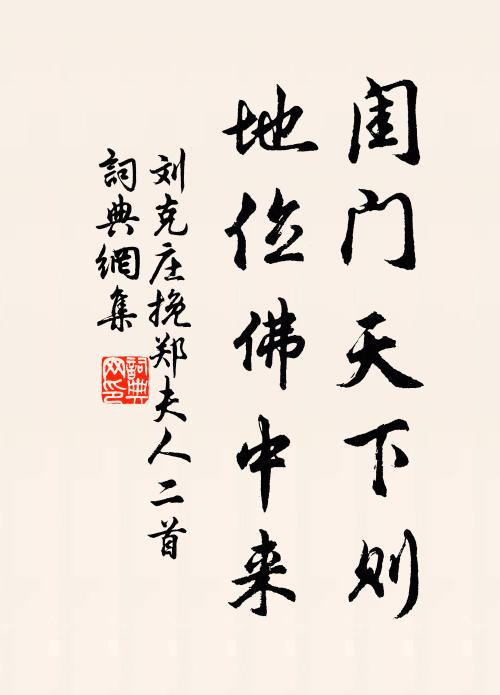 闺门天下则
地位佛中来
刘克庄挽郑夫人二首
詞典網集
詞典网印